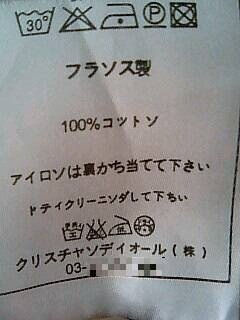 30°
フラソス製
100%コットソ
アイロソは裏かち当てて下さい
ドティクリーニソダして下ちい
クリスチャソディオール(株)
03-